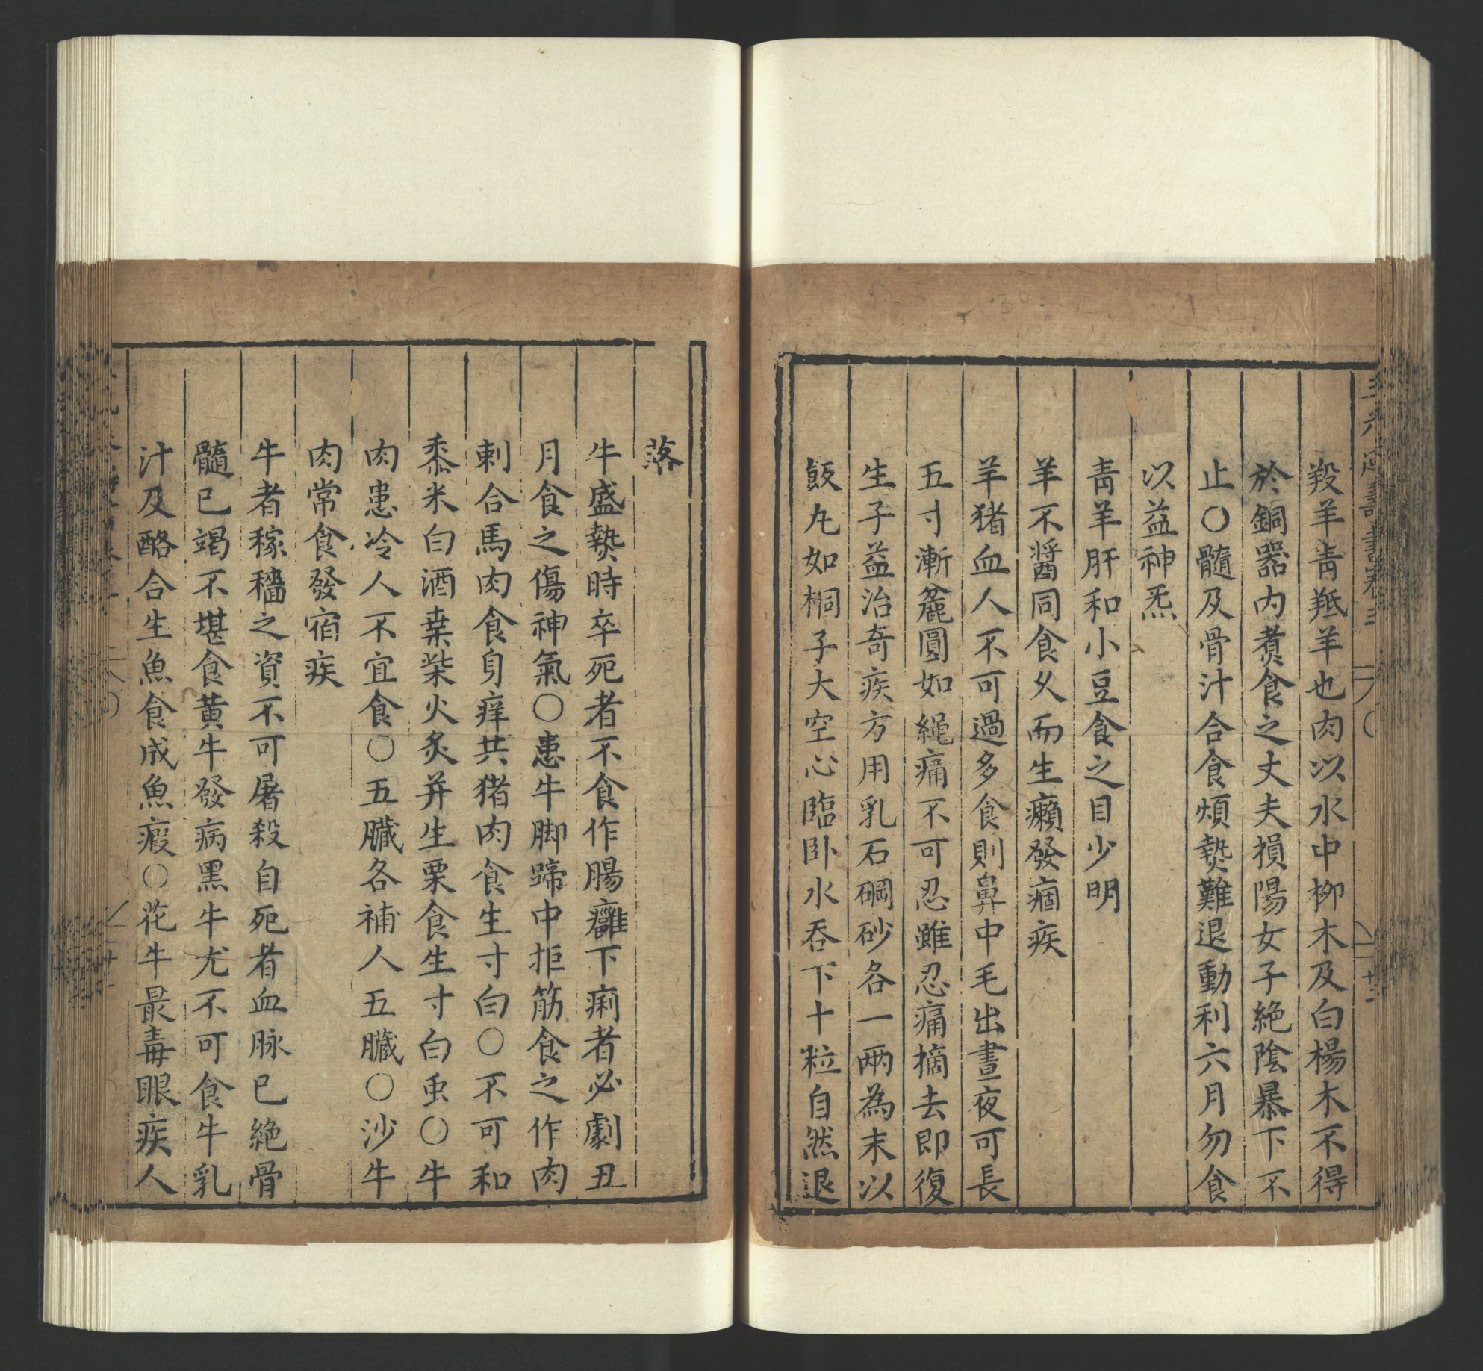 羖羊青羝羊也肉以水中柳木及白楊木不得
於銅器内煑食之丈夫損陽女子絶陰暴下不
止〇髓及骨汁合食煩𤍠難退動利六月勿食
以益神炁
青羊肝和小豆食之目少明
羊不醬同食乆而生癩發痼疾
羊猪血人不可過多食則鼻中毛出晝夜可長
五寸漸麄圓如繩痛不可忍雖忍痛摘去即復
生子益治奇疾方用乳石硇砂各一兩為末以
飯丸如桐子大空心臨卧水吞下十粒自然退
落
牛盛𤍠時卒死者不食作腸癰下痢者必劇丑
月食之傷神氣〇患牛脚蹄中拒筋食之作肉
刺合馬肉食身痒共猪肉食生寸白〇不可和
黍米白酒桒柴火炙并生栗食生寸白虫〇牛
肉患冷人不宜食〇五臓各補人五臓〇沙牛
肉常食發宿疾
牛者稼穡之資不可屠殺自死者血脉已絶骨
髓已竭不堪食黄牛發病黑牛尤不可食牛乳
汁及酪合生魚食成魚瘕〇花牛最毒眼疾人